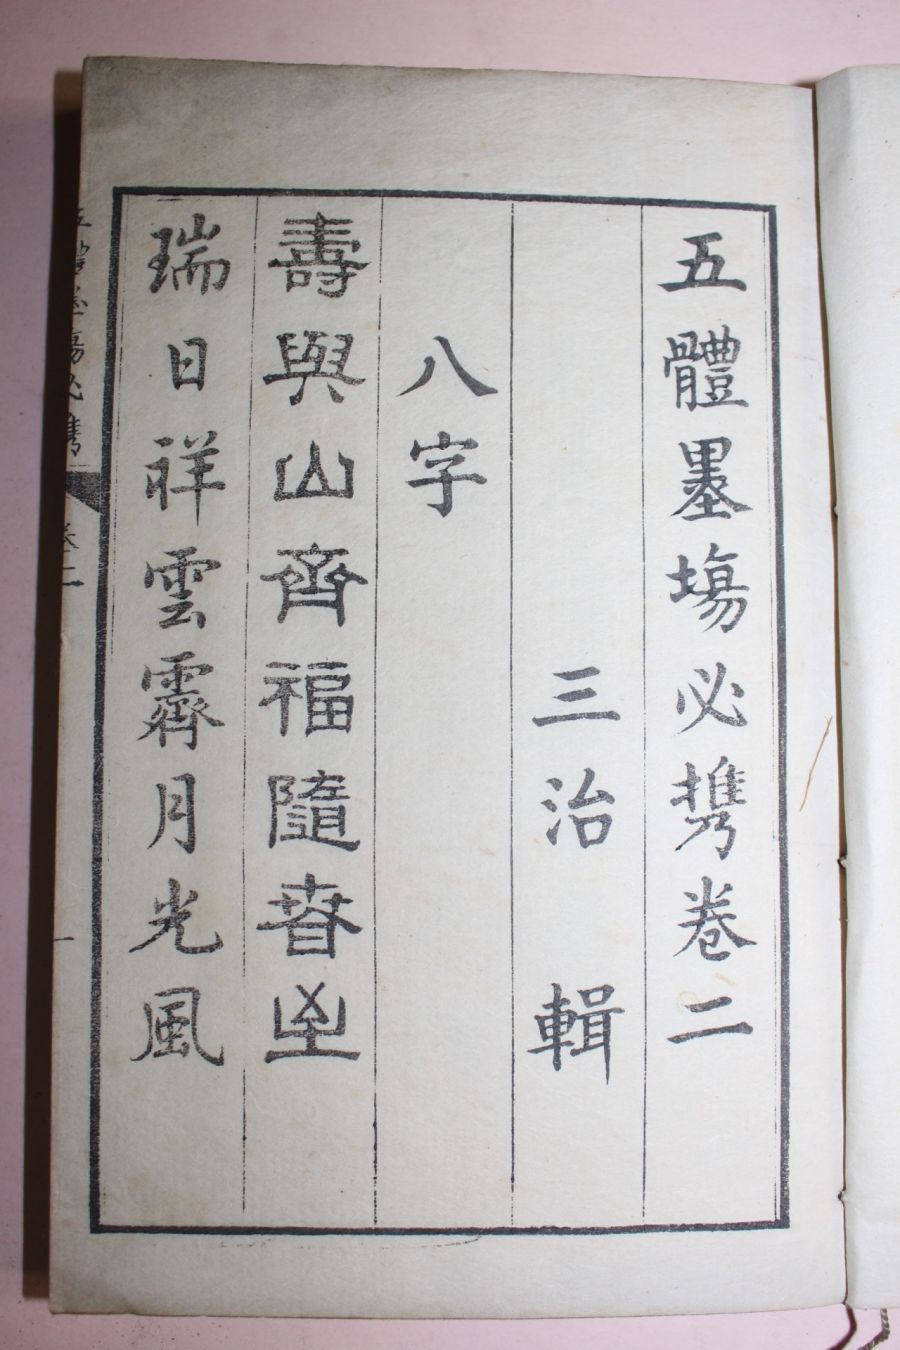 五體墨場必携卷二
三治 輯
八字
壽與山齊福隨春至
瑞日祥雲霽月光風
五體墨場必携
卷二
一